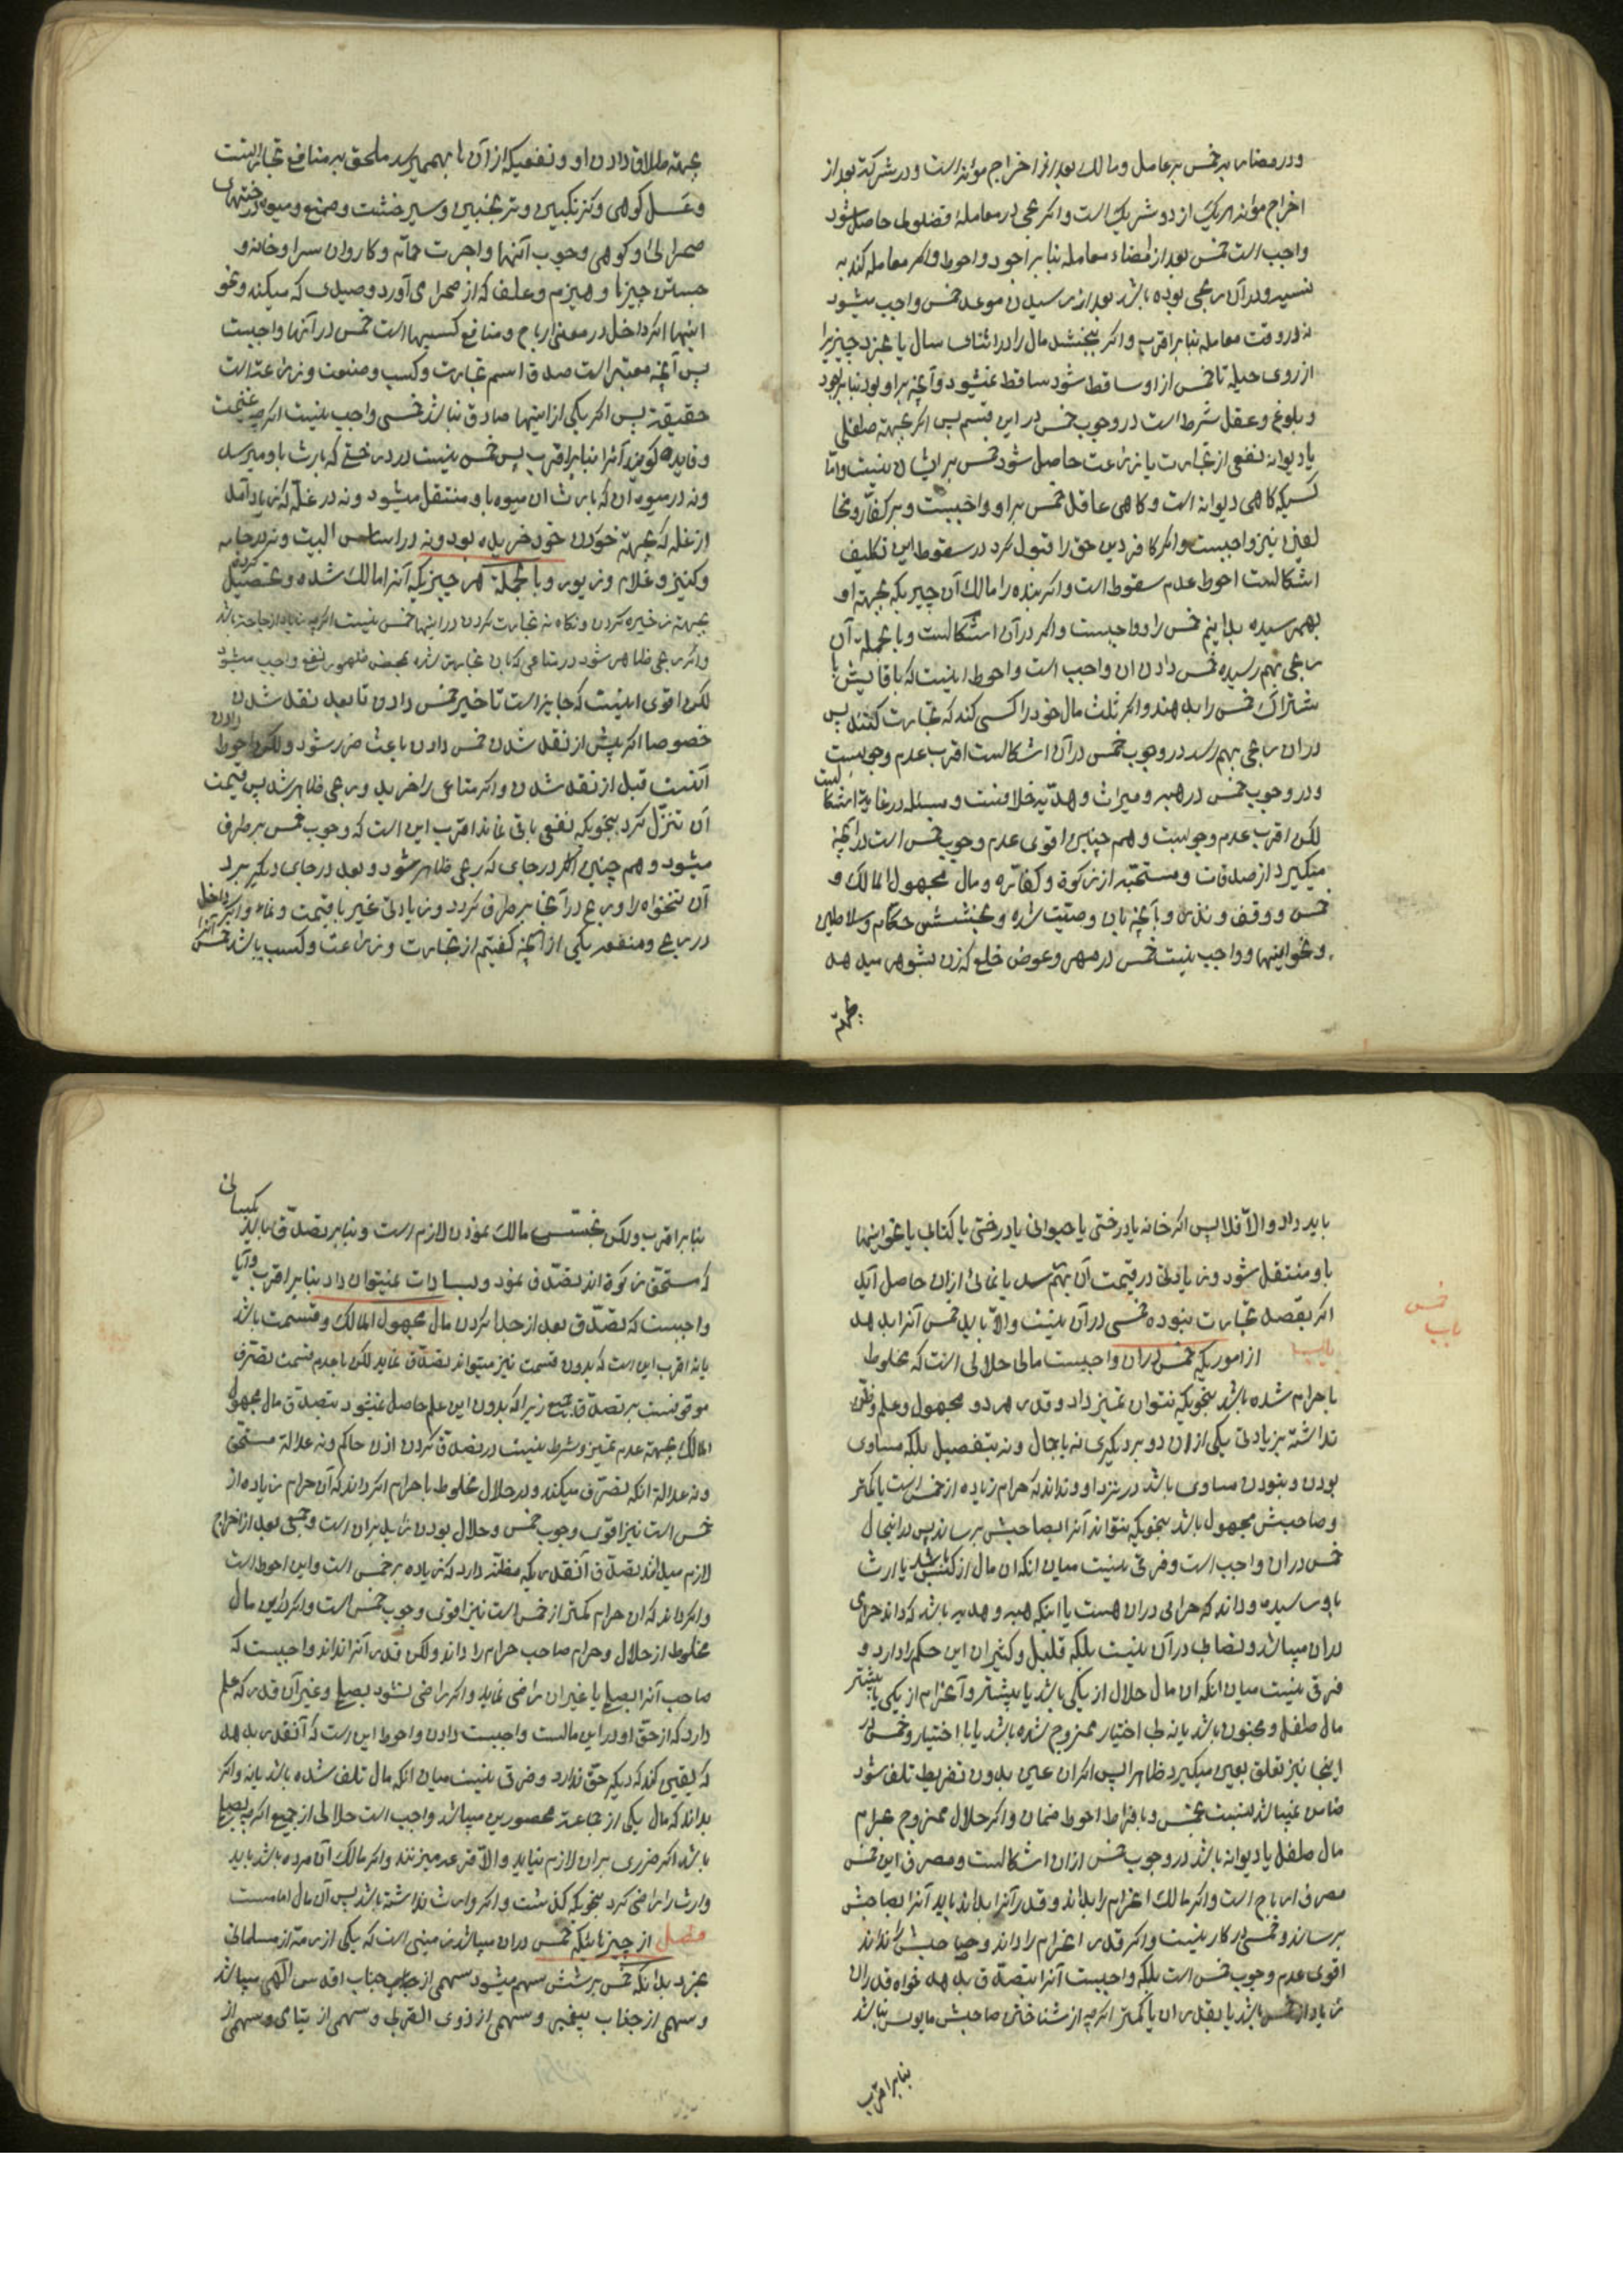 و در مضاربه خمس بر عامل و مالك بعد از اخراج مؤنه است و در شركة بعد از
اخراج مؤنه هر یك از دو شریك است و اكر ربحی در معاملهٔ فضولی حاصل شود
واجب است خمس بعد از امضاء معامله بنا بر اجود و احوط و اكر معامله كند به
نسیه و در آن ربحی بوده باشد بعد از رسیدن موعد خمس واجب میشود
نه در وقت معامله بنا بر اقرب و اكر ببخشد مال را در اثنای سال یا بخرد چیزیرا
از روی حیله تا خمس از او ساقط شود ساقط نمیشود و آنچه بر او بود بنا بر اجود
و بلوغ و عقل شرط است در وجوب خمس در این قسم پس اكر بجهة طفلی
یا دیوانه نفعی از تجارت یا زراعت حاصل شود خمس بر ایشان نیست و امّا
كسیكه كاهی دیوانه است و كاهی عاقل خمس بر او واجبست و بر كفّار و مخا
لفین نیز واجبست و اكر كافر دین حق را قبول كرد در سقوط این تكلیف
اشكالست احوط عدم سقوط است و اكر بنده را مالك آن چیزیكه بجهة او
بهم رسیده بدانیم خمس را و واجبست و اكر در آن اشكالست و با بجمله آن
ربحی بهم رسیده خمس دادن ان واجب است و احوط اینست كه با قایش با
شتراك خمس را بدهند و اكر ثلث مال خود را كسی كند كه تجارت كنند پس
در ان ربحی بهم رسد در وجوب خمس در آن اشكالست اقرب عدم وجوبست
و در وجوب خمس در هبه و میراث و هدّیه خلافست و مسئله در غایة اشكا لست
لكن اقرب عدم وجوبست و هم چنین اقوی عدم وجوب خمس است در آنچه
میكیرد از صدقات و مستحبّه از زكوة و كفاّره و مال مجهول المالك و
خمس و وقف و نذر و با آنچه بان وصیّت شده و بخشش حكّام و سلاطین
و نحو اینها و واجب نیست خمس در مهر و عوض خلع كه زن بشوهر میدهد
بجهة
بجهة طلاق دادن او و نفعیكه از آن ها بهم میرسد ملحق به منافع تجارتست
و عسل كوهی و كزنكبین و ترنجبین و سیرخشت و صمغ و میوهٔ درختهای
صحرائی و كوهی وجوب آنها و اجرت حمّام و كاروان سرا و خانه و
جستن چیزها و هیزم و علف كه از صحرا می آورد و صیدی كه میكند و نحو
اینها اكر داخل در معنی ارباح و منافع كسبها است خمس در آنها واجبست
پس آنچه معتبر است صدق اسم تجارت و كسب و صنعت و زراعتست
حقیقة پس اكر یكی از اینها صادق نباشد خمسی واجب نیست اكرچه غنیمت
و فایده كویند آنرا بنا بر اقرب پس خمس نیست در درختی كه بارث باو میرسد
و نه در میوه ان كه بارث ان میوه باو منتقل میشود و نه در غلّه كه زیاد آمد
از غله كه بجهة خوردن خود خریده بود و نه در اساس البیت و نه در جامه
و كنیز و غلام و زیور و با بجملة هر چیزیكه آنرا مالك شده و تحصیل كرده
بجهة ذخیره كردن و نكاه نه تجارت كردن در اینها خمس نیست اكرچه زیاد از حاجة باشد
و اكر ربحی ظاهر شود در متاعی كه بان تجارت شده بمحض ظهور نفع واجب میشود
لكن اقوی اینست كه جایز است تاخیر خمس دادن تا بعد نقد شدن
خصوصا اكر پیش از نقد شدن خمس دادن باعث ضرر شود و لكن احوط دادن
آنست قبل از نقد شدن و اكر متاعی را خرید و ربحی ظاهر شد پس قیمت
آن تنزّل كرد بنحویكه نفعی باقی نماند اقرب این است كه وجوب خمس بر طرف
میشود و هم چنین اكر در جای كه ربحی ظاهر شود و بعد در جای دیكر ببرد
آن تنخواه را و ربح در آنجا بر طرف كردد و زیادتی غیر با قیمت و نماء و اكر داخل
در ربح و منفعة یكی از آنچه كفتیم از تجارت و زراعت و كسب باشد خمس آنرا
باید داد و الاّ فلا پس اكر خانه یا درختی یا حیوانی یا درختی یا كتابی یا نحو اینها
باو منتقل شود و زیادتی در قیمت آن بهم رسد یا نمائی ازان حاصل آید
اكر بقصد تجارت نبوده خمسی در آن نیست و الاّ باید خمس آنرا بدهد
از اموریكه خمس در ان واجبست مالی حلالی است كه مخلوط
با حرام شده باشد بنحویكه نتوان تمیز داد و قدر هر دو مجهول و علم و ظنّ
نداشته بزیادتی یكی از ان دو بر دیكری نه باجمال و نه بتفصیل بلكه مساوی
بودن و نبودن مساوی باشد در نزد او و نداند كه حرام زیاده از خمس است یا كمتر
و صاحبش مجهول باشد بنحویكه نتواند آنرا بصاحبش برساند پس در اینحال
خمس در ان واجب است و فرقی نیست میان انكه ان مال از كسبش باشد یا ارث
باو رسیده و داند كه حرامی در ان هست یا اینكه هبه و هدیه باشد كه داند حرامی
در ان میباشد و نصابی در آن نیست بلكه قلیل و كثیر ان این حكم را دارد و
فرق نیست میان انكه ان مال حلال از یكی باشد یا بیشتر و آنحرام از یكی یا بیشتر
مال طفل و مجنون باشد یا نه بی اختیار ممزوج شده باشد یا با اختیار و خمس در
اینجا نیز تعلق بعین میكیرد ظاهرا پس اكر ان عین بدون تفریط تلف شود
ضامن نمیباشد نسبت بخمس و با فراط احوط ضمان و اكر حلال ممزوج بحرام
مال طفل یا دیوانه باشد در وجوب خمس ازان اشكالست و مصرف این خمس
مصرف ارباح است و اكر مالك انحرام را بداند و قدر آنرا بداند باید آنرا بصاحبش
برساند و خمسی در كار نیست و اكر قدر انحرام را داند و صاحبش را نداند
اقوی عدم وجوب خمس است بلكه واجبست آنرا بتصدّق بدهد خواه قدر ان
زیاد از خمس باشد یا بقدر ان یا كمتر اكرچه از شناختن صاحبش مایوس نباشد
بنا بر اقرب
خمس
باب
بنا بر اقرب و لكن تجسّس مالك نمودن لازم است و بنا بر تصدّق باید بكسانی
كه مستحق زكوة اند تصدّق نمود و بسادات نمیتوان داد بنا بر اقرب و آیا
واجبست كه تصدّق بعد از جدا كردن مال مجهول المالك و قسمت باشد
یا نه اقرب این است كه بدون قسمت نیز میتواند تصدّق نماید لكن با عدم قسمت تصرّف
موقوفست بر تصدّق جمیع زیرا كه بدون این علم حاصل نمیشود بتصدّق مال مجهول
المالك بجهة عدم تمیز و شرط نیست در تصدق كردن اذن حاكم و نه عدالة مستحق
و نه عدالة انكه تصرّف میكند و در حلال مخلوط با حرام اكر داند كه آن حرام زیاده از
خمس است نیز اقوی وجوب خمس و حلال بودن زایدبران است و بعد از اخراج
لازم میداند تصدّق آنقدریكه مظنّه دارد كه زیاده بر خمس است و این احوط است
و اكر داند كه ان حرام كمتر از خمس است نیز اقوی وجوب خمس است و اكر در این مال
مخلوط از حلال و حرام صاحب حرام را داند و لكن قدر آنرا نداند واجبست كه
صاحب آنرا بصلح یا غیر ان راضی نماید و اكر راضی نشود بصلح و غیر آن قدر كه علم
دارد كه از حقّ او در این مالست واجبست دادن و احوط این است كه آنقدر بدهد
كه یقین كند كه دیكر حقّ ندارد و فرق نیست میان انكه مال تلف شده باشد یا نه و اكر
بداند كه مال یكی از جماعة محصورین میباشد واجب است حلالی از جمیع اكرچه بصلح
باشد اكر ضرری بران لازم نیاید و الاّ قرعه میزنند و اكر مالك آن مرده باشد باید
وارث را راضی كرد بنحویكه كذشت و اكر وارث نداشته باشد پس آن مال امامست
فصل از چیزهائیكه خمس در ان میباشد زمینی است كه یكی از ذمّه از مسلمانی
بخرد بدانكه خمس بر شش سهم میشود سهمی از جناب اقدس الهی میباشد
و سهمی از جناب پیغمبر و سهمی از ذوی القربی و سهمی از یتامی و سهمی از